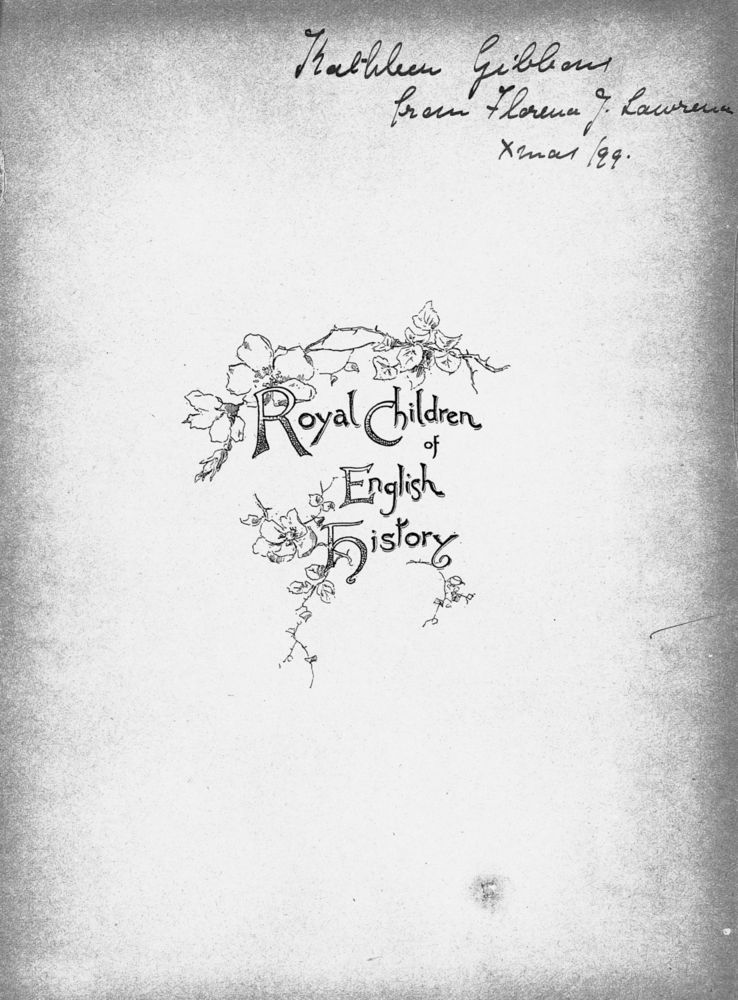 Kathleen Gibbons
from Florence J. Lawrence
Xmas /99.
Royal Children
of
English
History